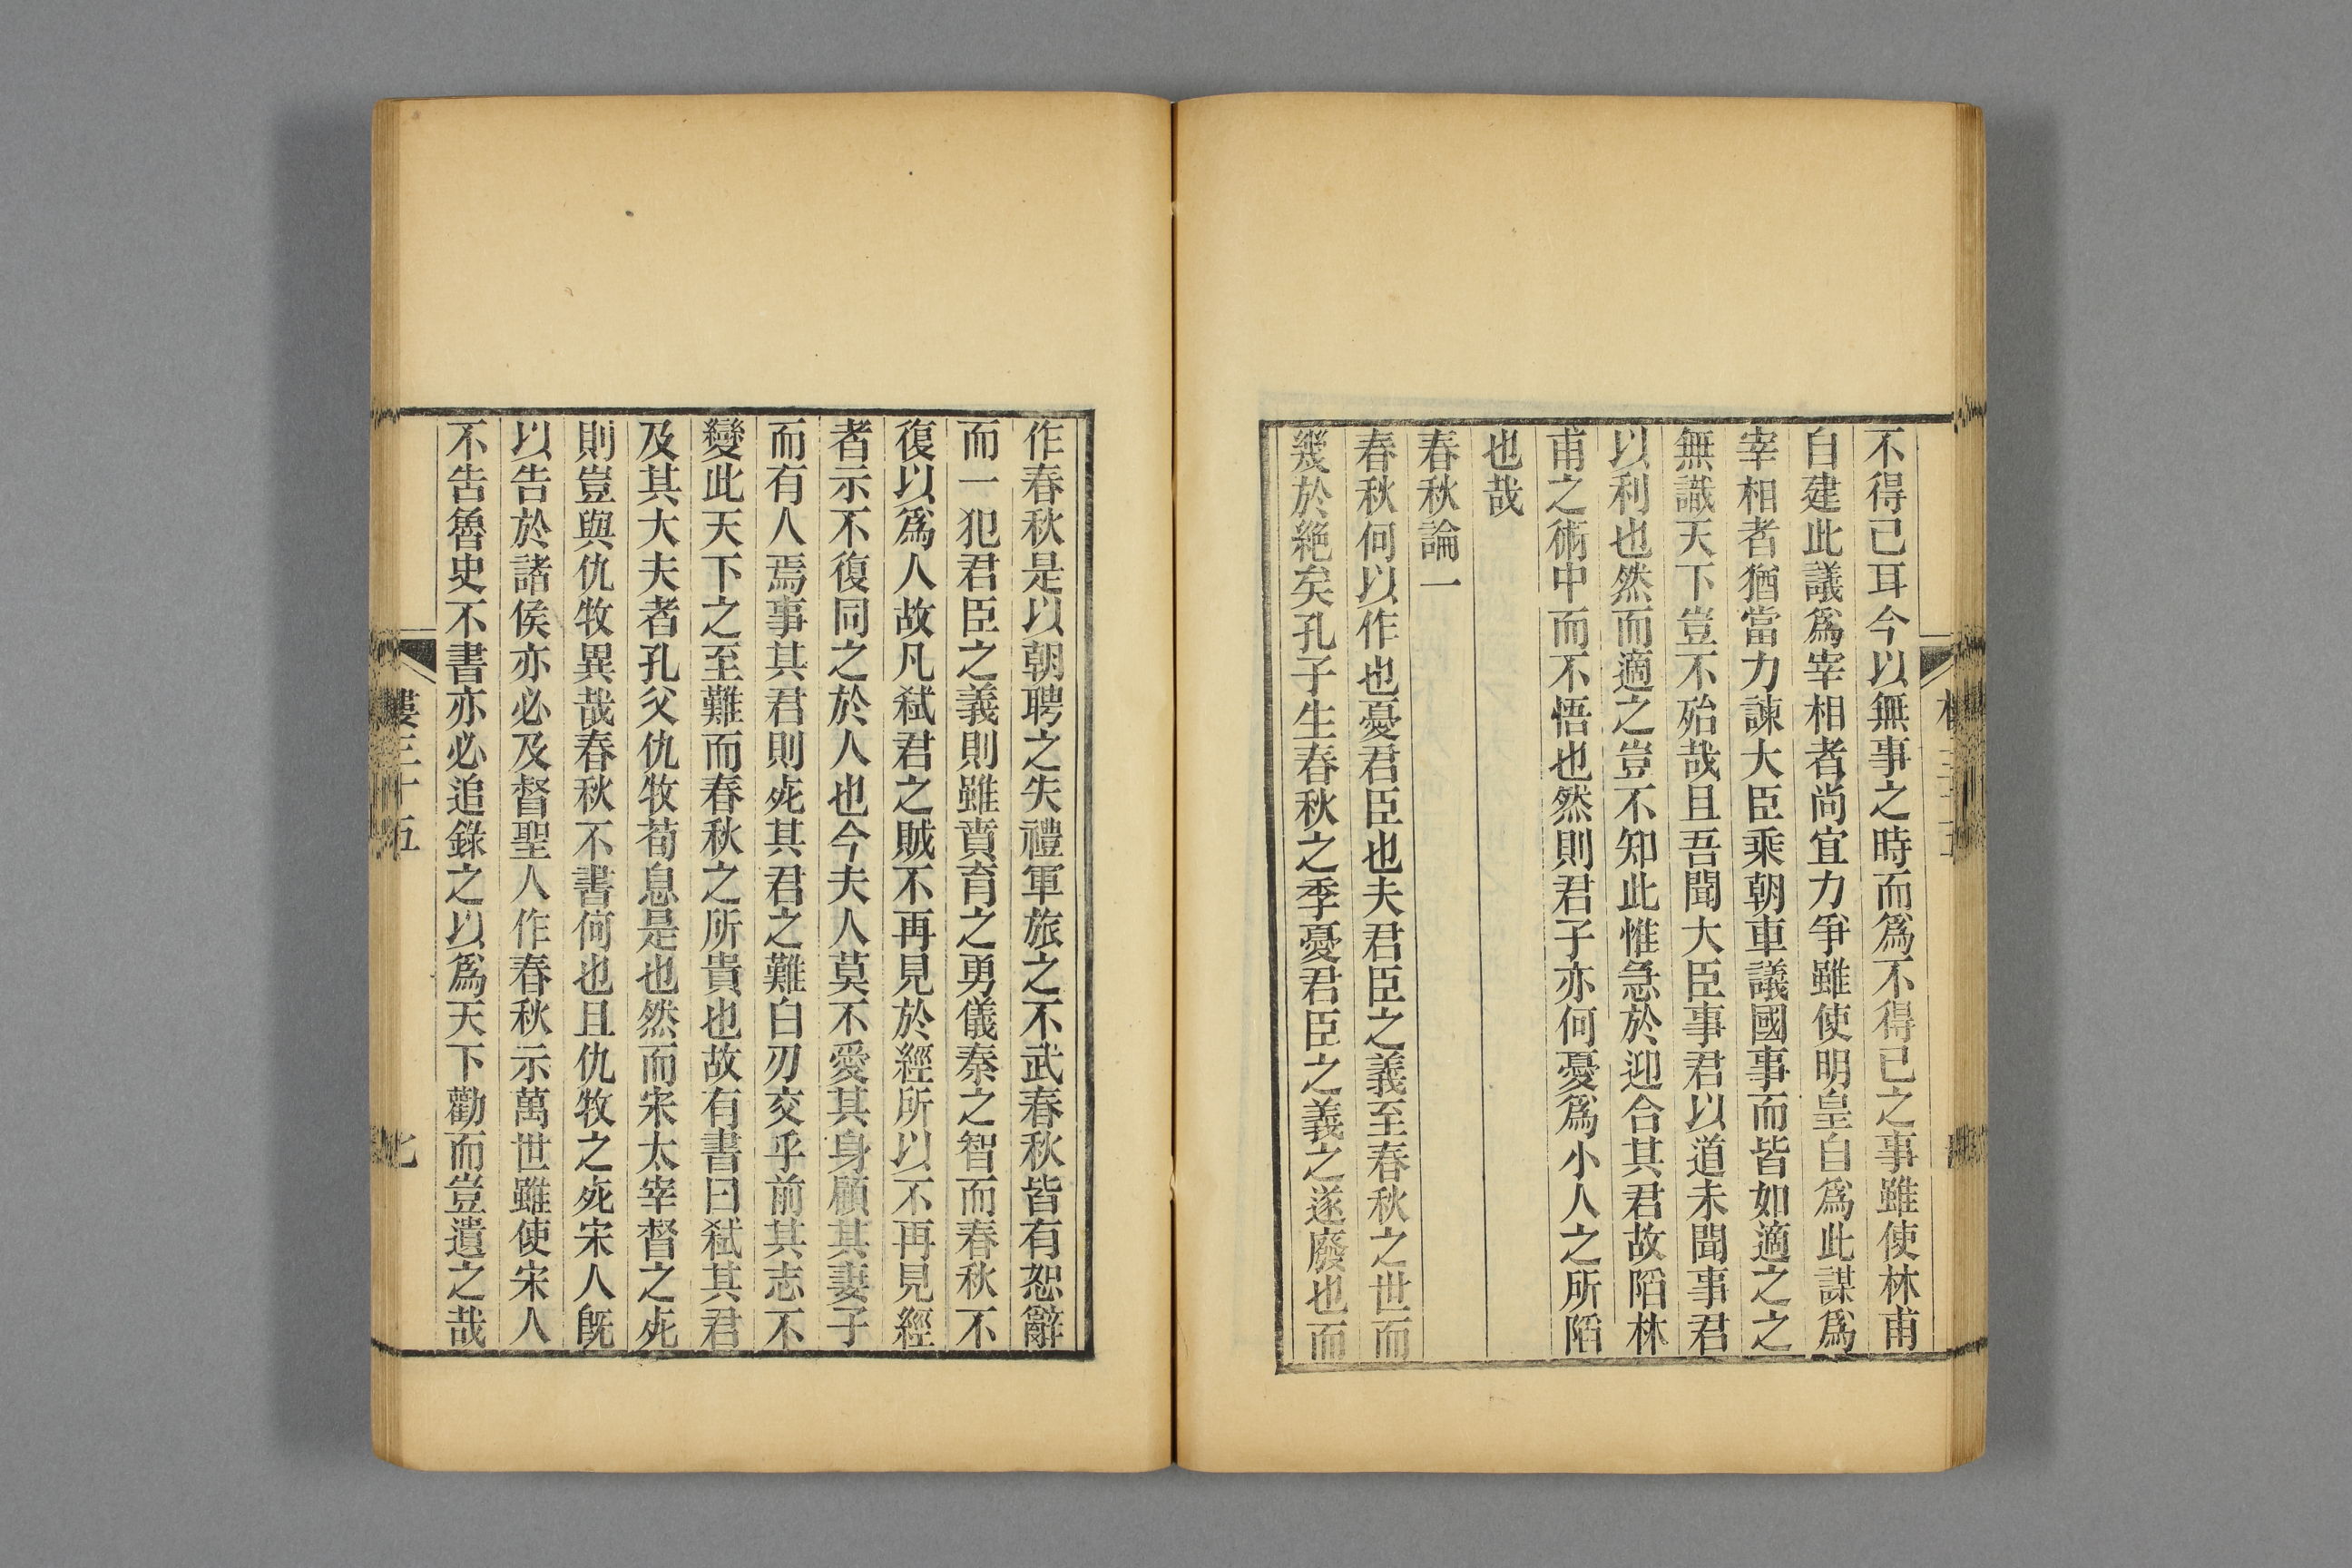 不得已耳今以無事之時而爲不得已之事雖使林甫
自建此議爲宰相者尚宜力爭雖使明皇自爲此謀爲
宰相者猶當力諫大臣乘朝車議國事而皆如適之之
無識天下豈不殆哉且吾聞大臣事君以道未聞事君
以利也然而適之豈不知此惟急於迎合其君故陷林
甫之術中而不悟也然則君子亦何憂爲小人之所陷
也哉
春秋論一
春秋何以作也憂君臣也夫君臣之義至春秋之世而
幾於絶矣孔子生春秋之季憂君臣之義之遂廢也而
作春秋是以朝聘之失禮軍旅之不武春秋皆有恕辭
而一犯君臣之義則雖賁育之勇儀秦之智而春秋不
復以爲人故凡弑君之賊不再見於經所以不再見經
者示不復同之於人也今夫人莫不愛其身顧其妻子
而有人焉事其君則死其君之難白刃交乎前其志不
變此天下之至難而春秋之所貴也故有書曰弑其君
及其大夫者孔父仇牧荀息是也然而宋太宰督之死
則豈與仇牧異哉春秋不書何也且仇牧之死宋人既
以告於諸侯亦必及督聖人作春秋示萬世雖使宋人
不告魯史不書亦必追錄之以爲天下勸而豈遺之哉
三十五